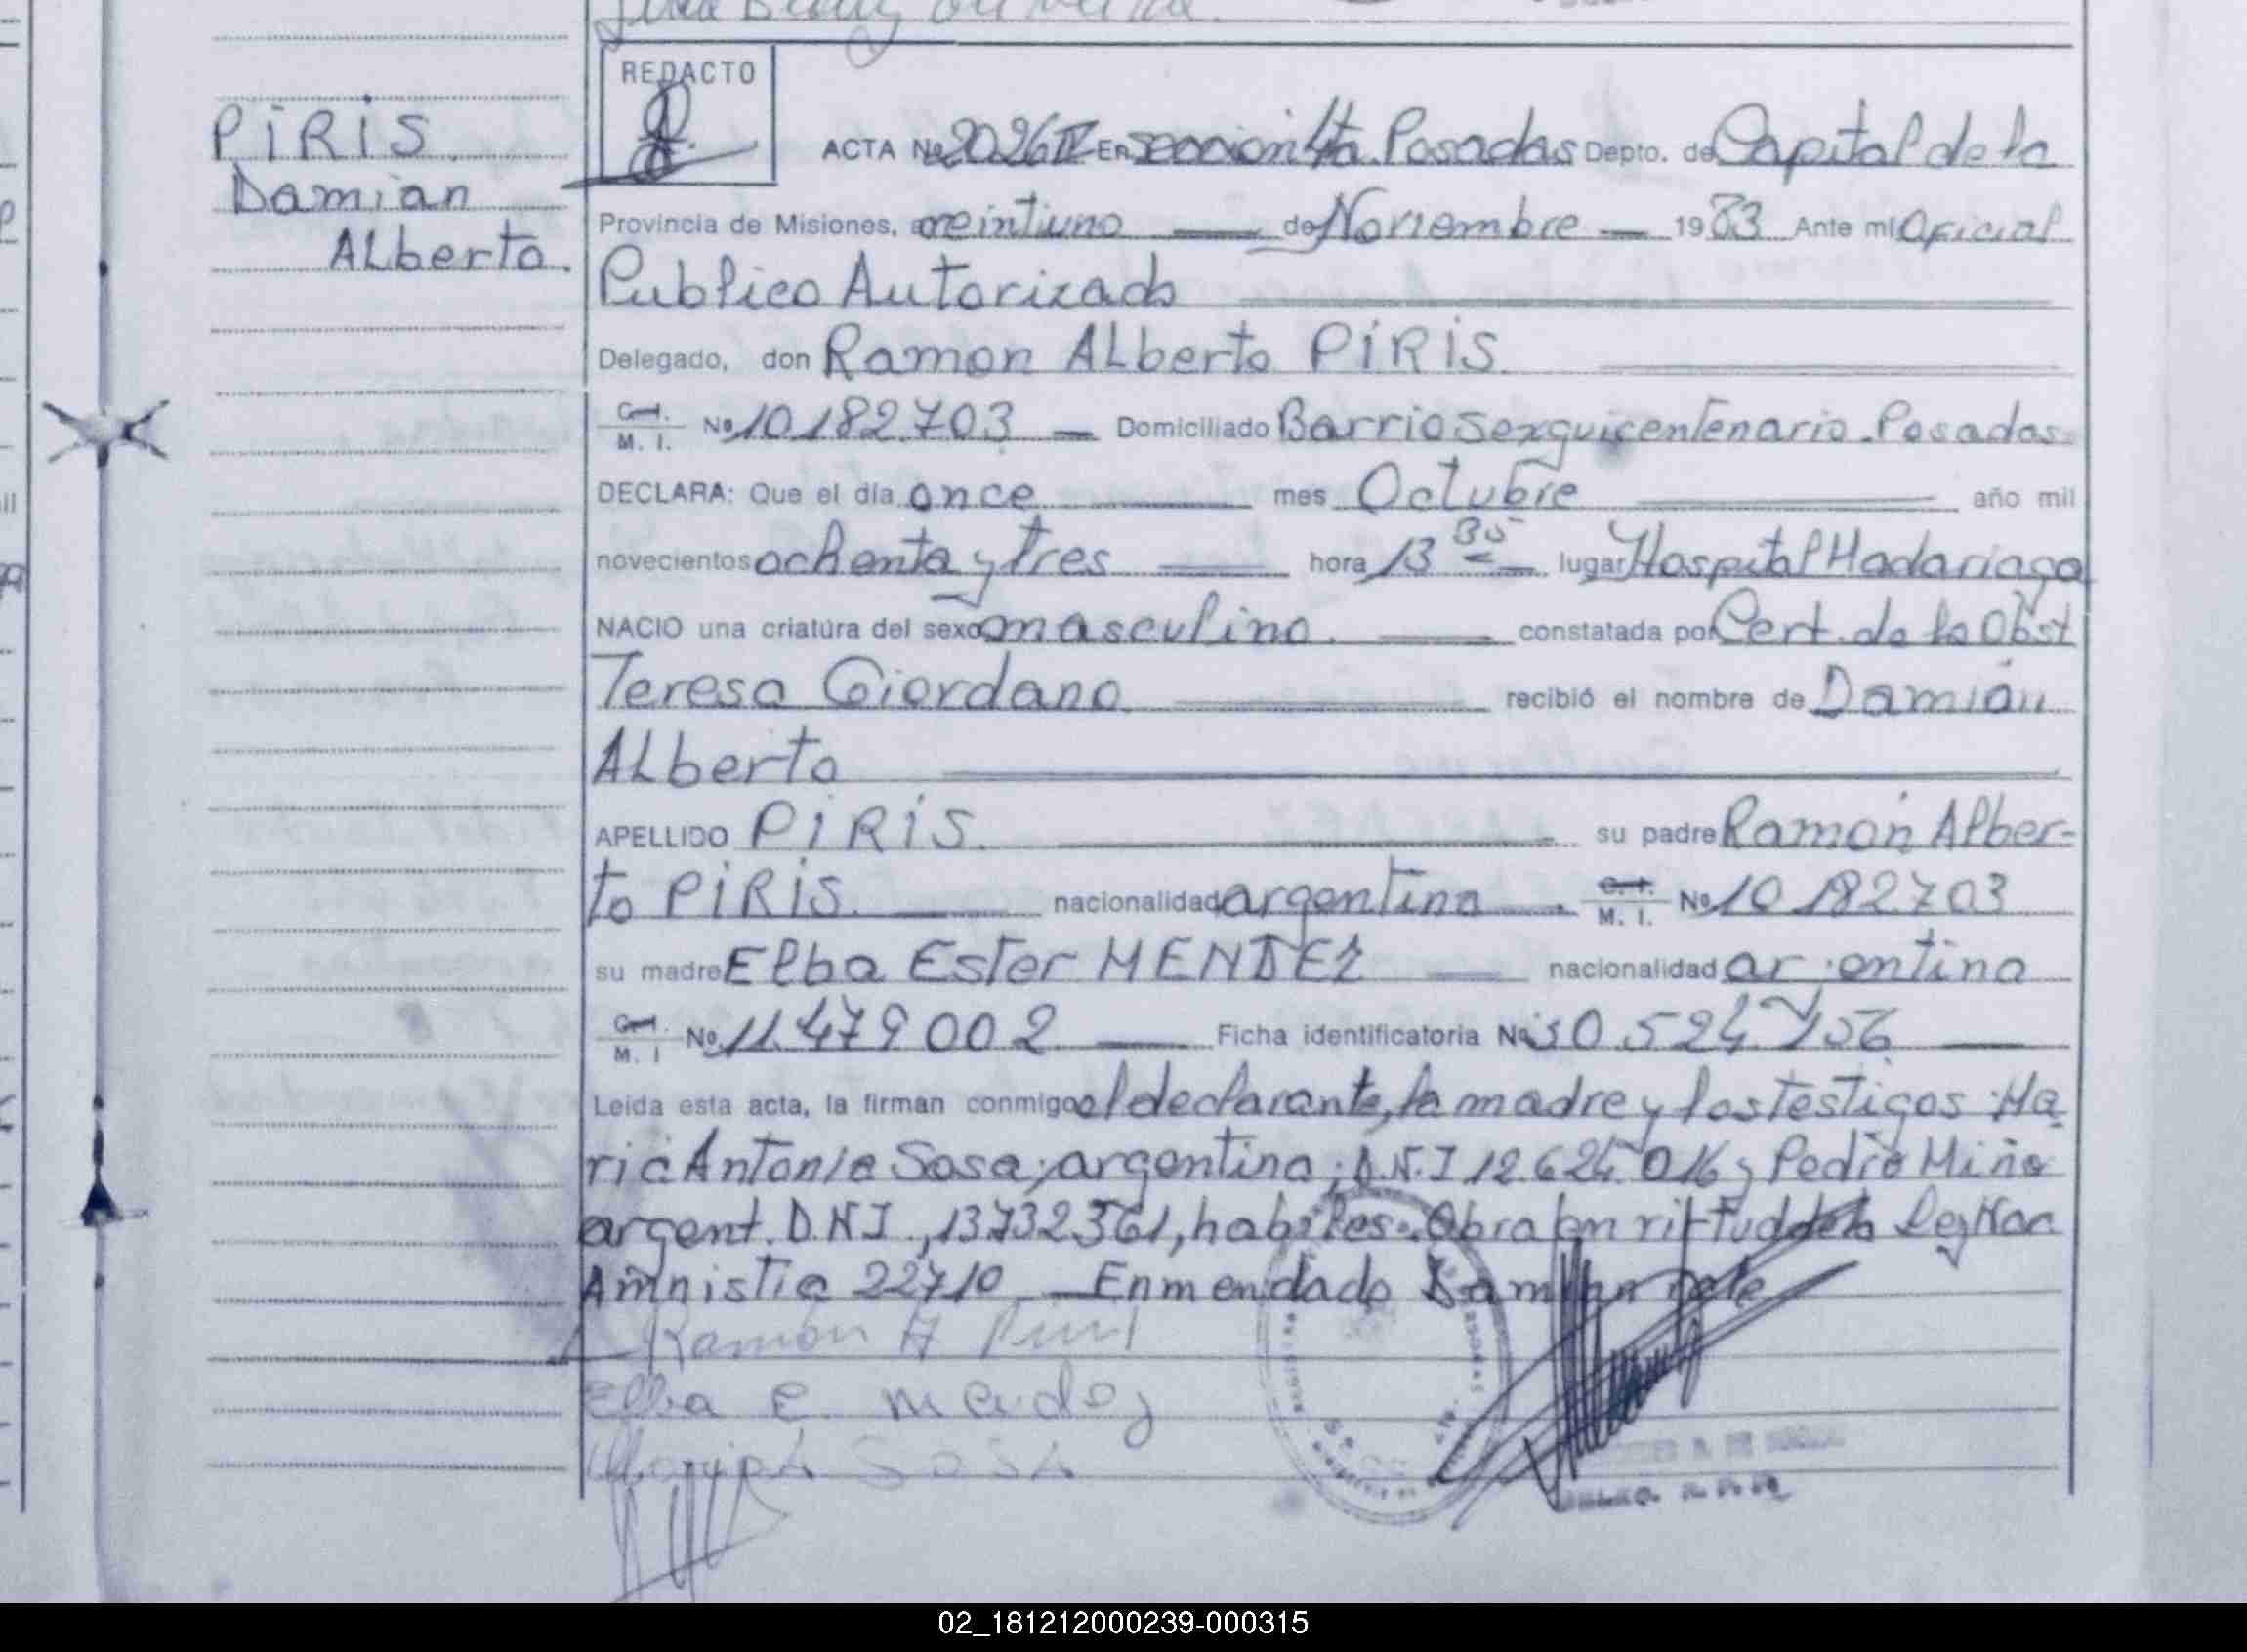 REDACTO
PIRIS
Damian
Alberto.
ACTA Nº 2026 IV En sección 4ta. Posadas Depto. de Capital de la
Provincia de Misiones, a veintiuno de Noviembre 1983 Ante mi Oficial
Publico Autorizado
Delegado, don Ramon ALberto PIRIS
C. I. M. I. Nº 10.182.703 Domiciliado Barrio Sexquicentenario. Posadas
DECLARA: Que el día once mes Octubre año mil
novecientos ochenta y tres hora 13 35 lugar Hospital Madariaga
NACIO una criatura del sexo masculino. constatada por Cert. de la Obst
Teresa Giordano recibió el nombre de Damián
ALberto
APELLIDO PIRIS. su padre Ramón Alber-
to PIRIS. nacionalidad argentina C. I. M. I. Nº 10.182.703
su madre Elba Ester MENDEZ nacionalidad argentina
C. I. M. I Nº 11.479.002 Ficha identificatoria Nº 30.524.156
Leída esta acta, la firman conmigo el declarante, la madre y los testigos: Ma-
ria Antonia Sosa, argentina, D.N.I 12.624.016 y Pedro Miño
argent. D.N.I., 13732361, habiles. Obra en virtud de la Ley Nac
Amnistia 22710 Enmendado Damian vale
Ramón A Piris
Elba E. Mendez
SOSA
02_181212000239-000315